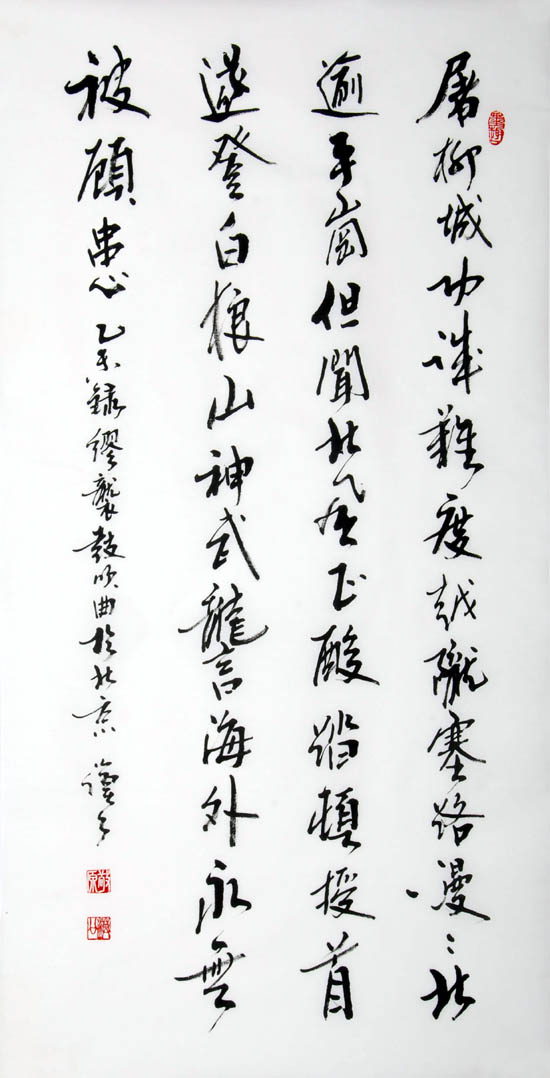 屠柳城功誠難度越隴塞路漫〻北
逾平崗但聞北風正酸蹋頓授首
遂登白狼山神武讋海外永無
被顧患 乙未錄繆襲鼓吹曲於北京